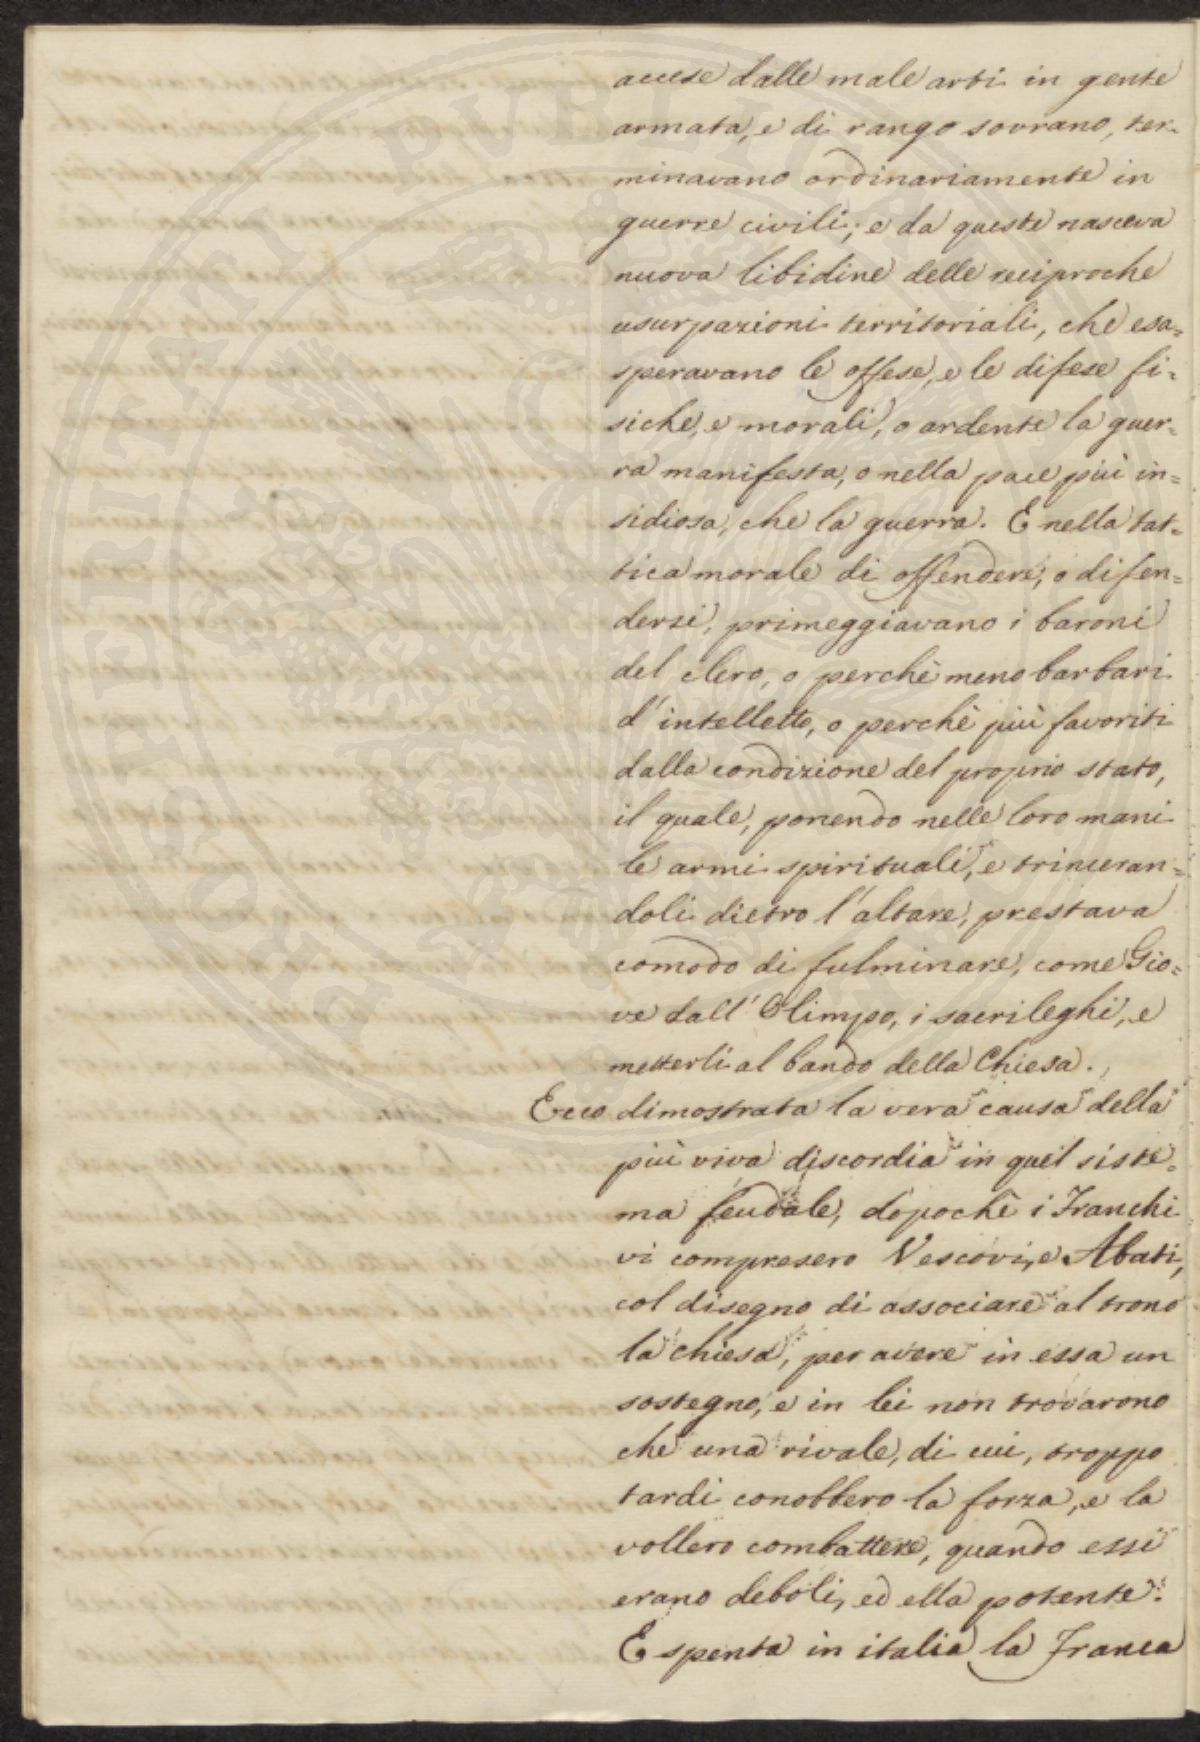 accese dalle male arti in gente
armata, e di rango sovrano, ter-
minavano ordinariamente in
guerre civili; e da queste nasceva
nuova libidine delle reciproche
usurpazioni territoriali, che esa=
speravano le offese, e le difese fi=
siche, e morali, o ardente la guer=
ra manifesta, o nella pace più in=
sidiosa, che la guerra. E nella tat=
tica morale di offendere, o difen=
dersi, primeggiavano i baroni
del clero, o perchè meno barbari
d'intelletto, o perchè più favoriti
dalla condizione del proprio stato,
il quale, ponendo nelle loro mani
le armi spirituali, e trinceran=
doli dietro l'altare, prestava
comodo di fulminare, come Gio=
ve dall'Olimpo, i sacrileghi, e
metterli al bando della Chiesa.
Ecco dimostrata la vera causa della
più viva discordia in quel siste=
ma feudale, dopochè i Franchi
vi compresero Vescovi, e Abati,
col disegno di associare al trono
la chiesa, per avere in essa un
sostegno, e in lei non trovarono
che una rivale, di cui, troppo
tardi conobbero la forza, e la
vollero combattere, quando essi
erano deboli, ed ella potente.
E spenta in italia la Franca
PROSPERITATI PVBLICAE